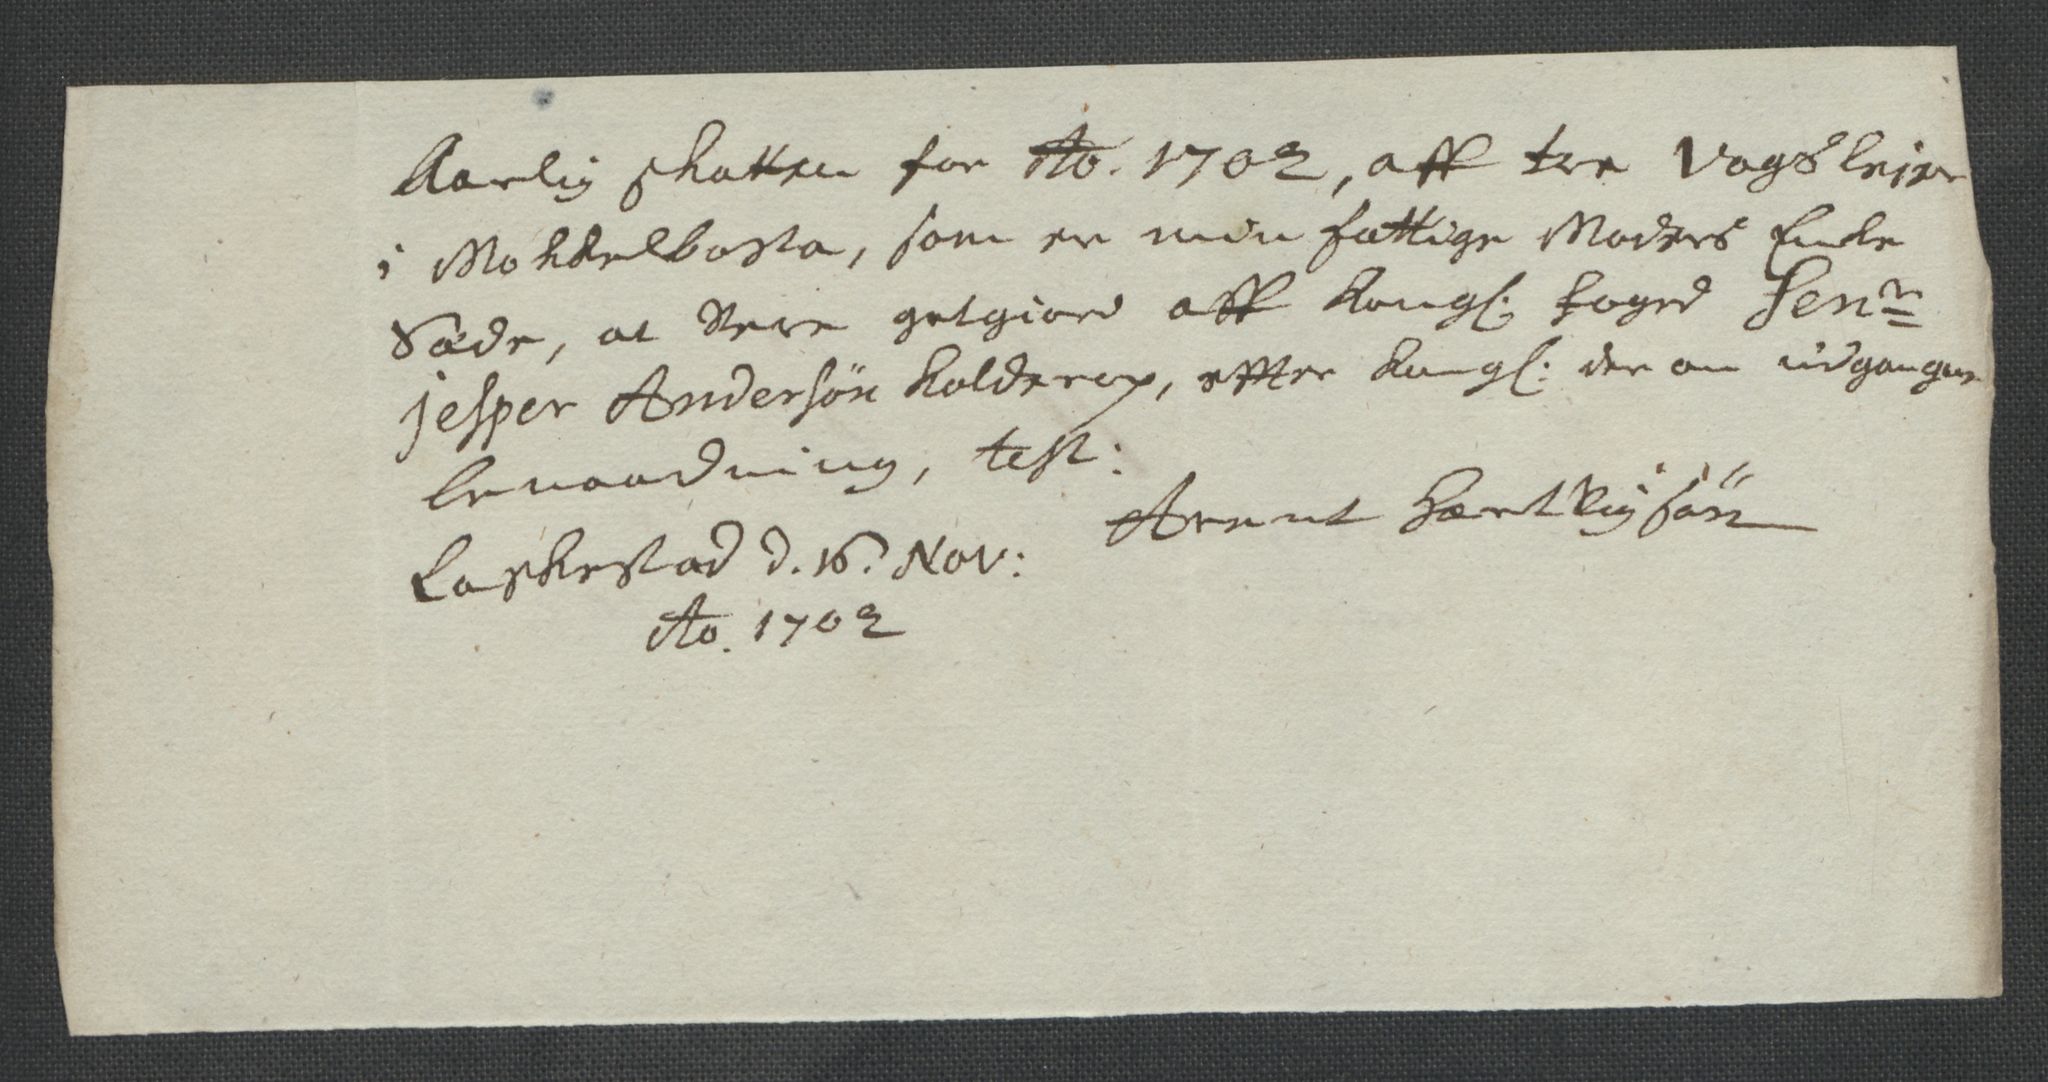 Aarlig skatten for Ao. 1702, aff tre Vogsleje
i Mokkelbosta, som er min fattige Moders Enke
Sæde, at være gotgiord aff Kongl: foged Sen:r
jesper Andersön Kolderop, efter Kongl: der om udgangne
benaadning, test:
Arent Hartvigsön
Laskestad d. 16. Nov:
Ao. 1702